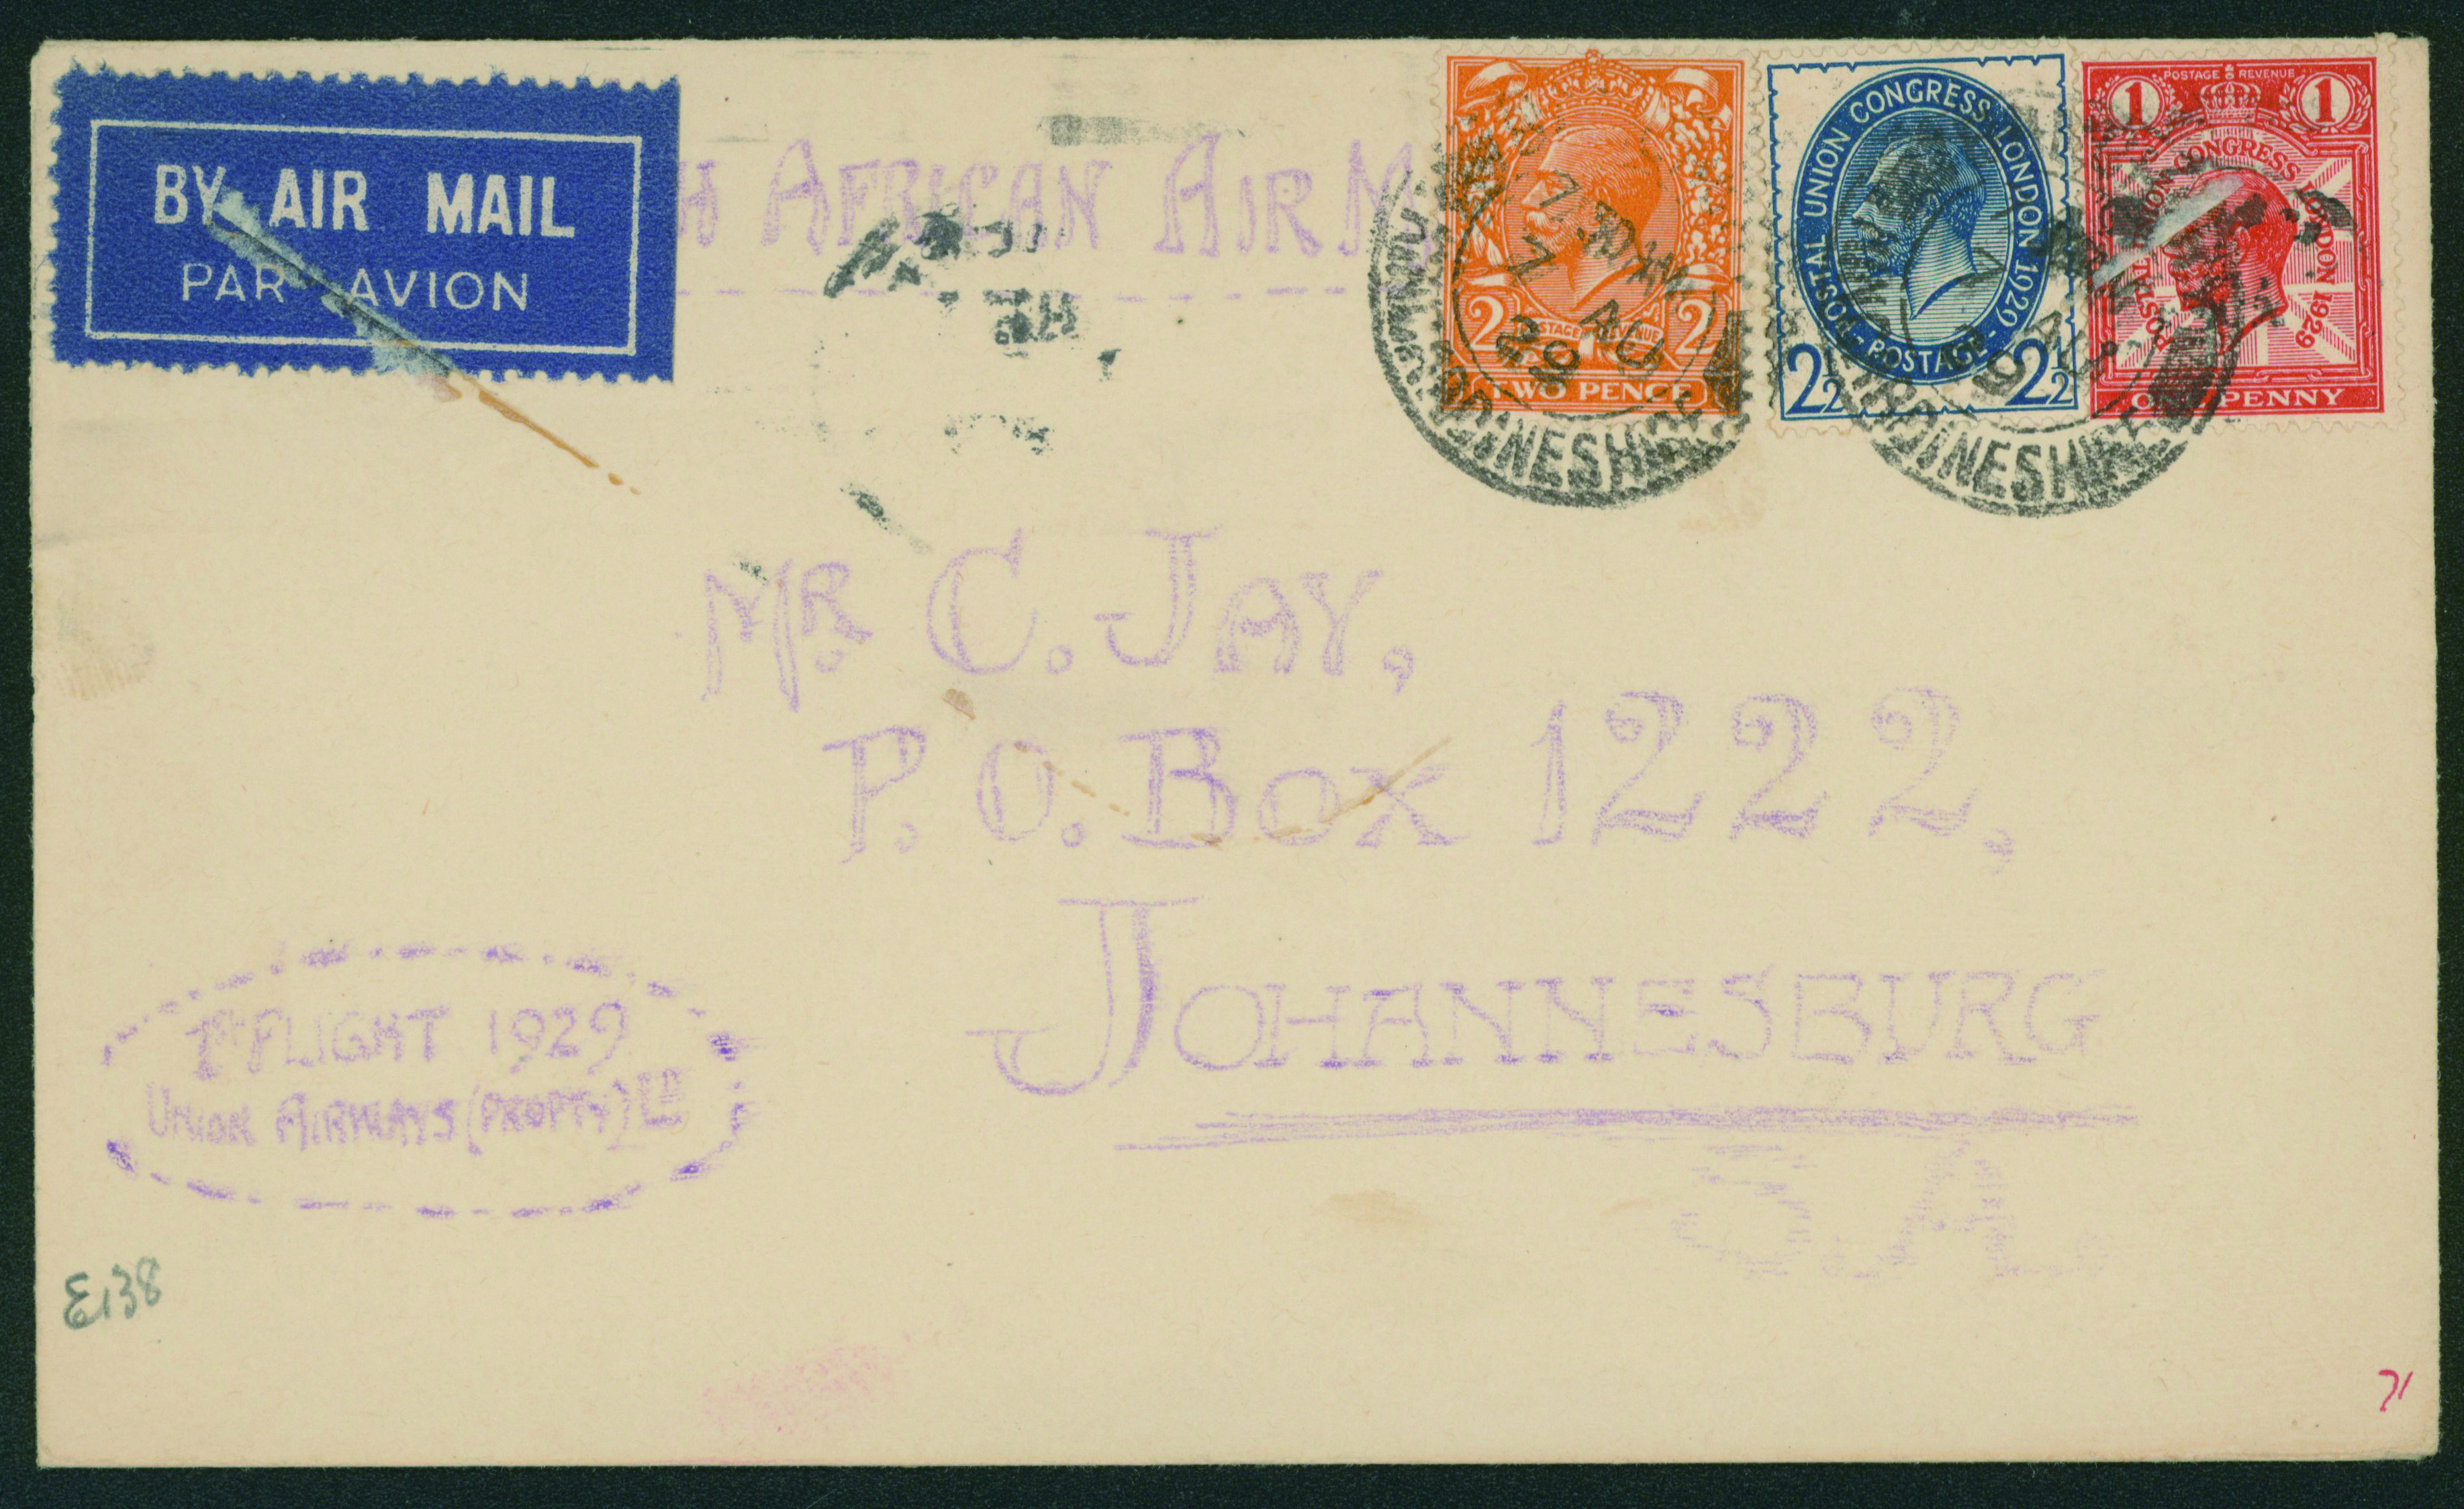 BY AIR MAIL
PAR AVION
H AFRICAN AIR M
TWO PENCE
2 POSTAGE REVENUE 2
POSTAL UNION CONGRESS LONDON 1929
POSTAGE
2½ 2½
POSTAGE REVENUE
1 1
POSTAL UNION CONGRESS LONDON 1929
ONE PENNY
7.30 AM
7 AU
29
KINCARDINESHIRE
7
AU
29
KINCARDINESHIRE
MR. C. JAY,
P.O. BOX 1222,
JOHANNESBURG
S.A.
1ST FLIGHT 1929
UNION AIRWAYS (PROPTY) LD
E138
71